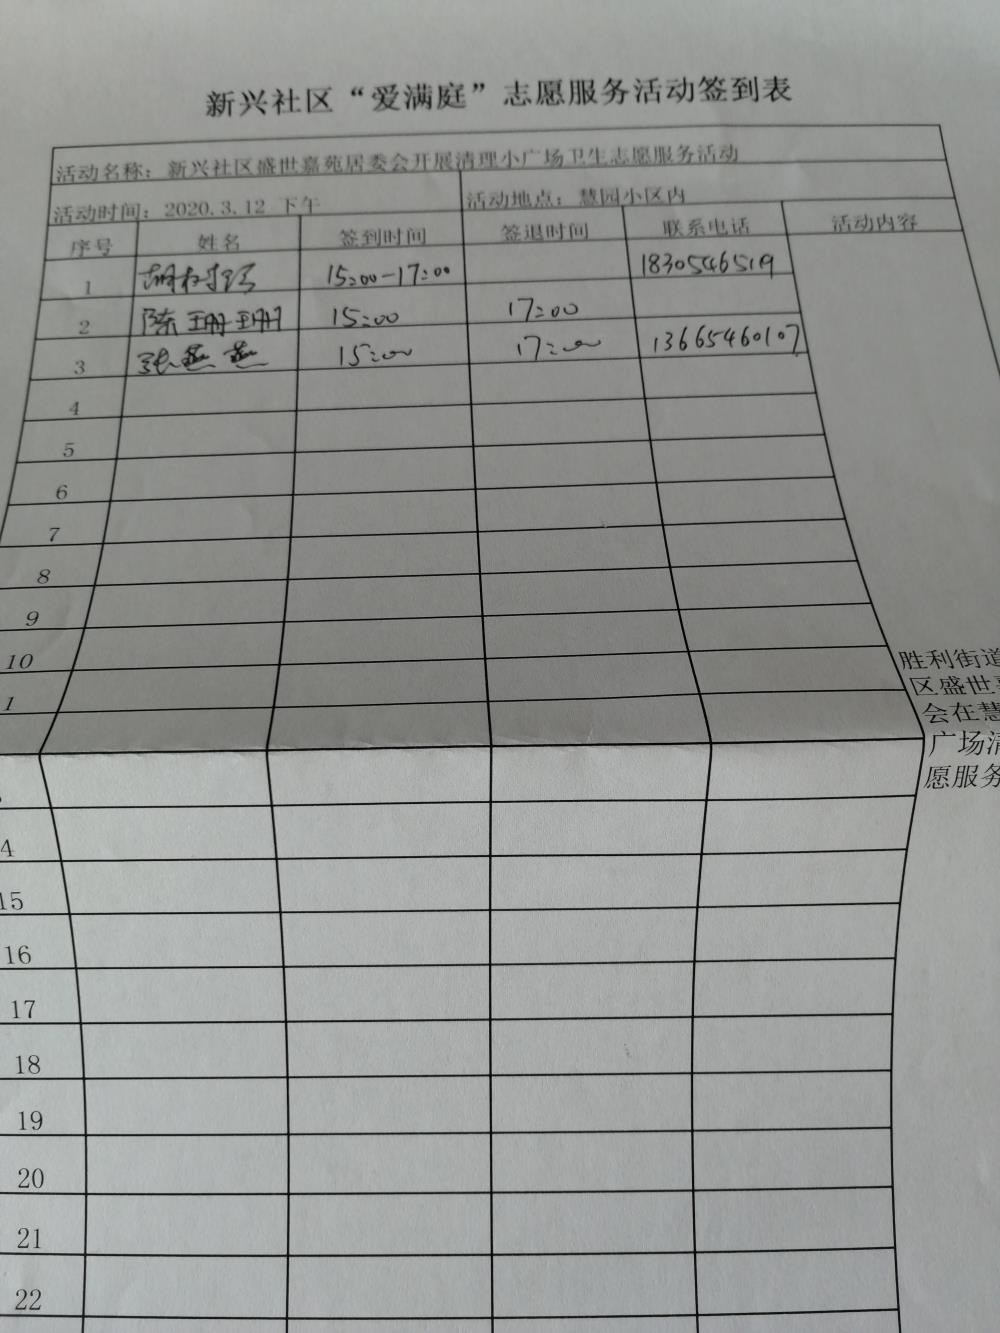 新兴社区“爱满庭”志愿服务活动签到表
活动名称：新兴社区盛世嘉苑居委会开展清理小广场卫生志愿服务活动
活动时间：2020.3.12 下午 活动地点：慧园小区内
序号 姓名 签到时间 签退时间 联系电话 活动内容
1 15:00-17:00 18305465119
2 陈珊珊 15:00 17:00
3 张燕燕 15:00 17:00 13665460107
4
5
6
7
8
9
10
1
胜利街道
区盛世
会在慧
广场清
愿服务
4
15
16
17
18
19
20
21
22